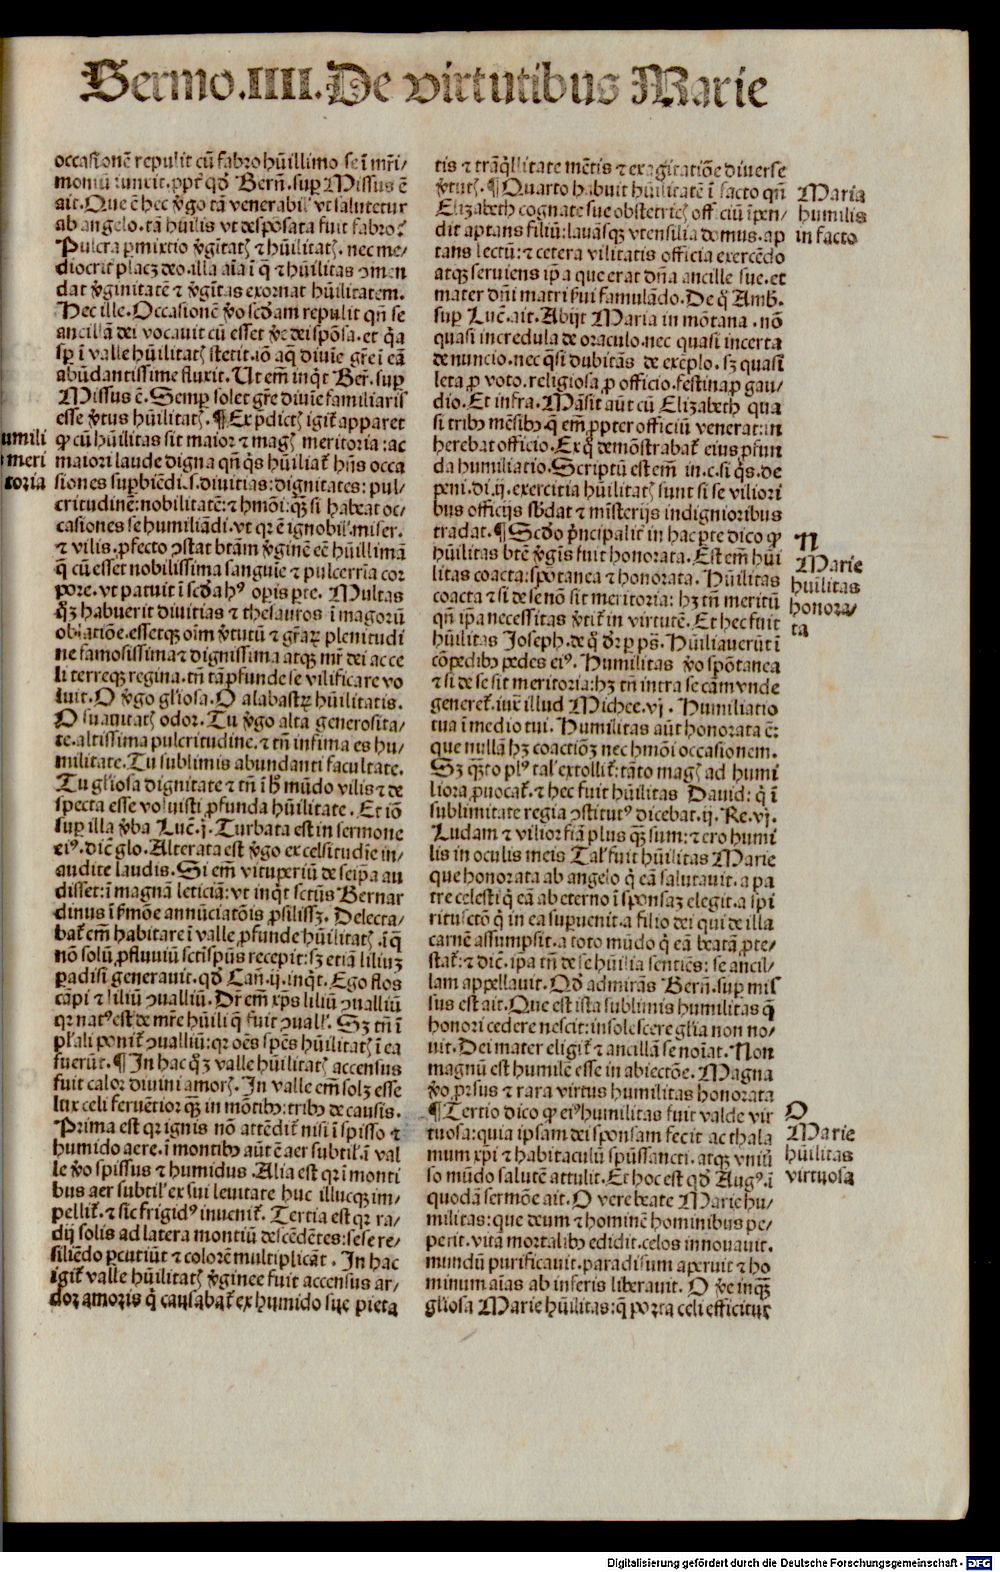 Sermo.IIII.De virtutibus Marie
occasionē repulit cū fabro hūillimo se ī mr̄i/
moniū iunxit.ꝓpt̄ qd̄ Bern̄.sup̱ Missus ē
ait.Que ē hec v̄go tā venerabil' vt salutetur
ab angelo.tā hūilis vt desponsata fuit fabro?
Pulcra ꝑmixtio v̄gītatꝭ ⁊ hūilitatꝭ.nec me/
diocrit̄ placꝫ deo.illa aīa ī q̄ ⁊ hūilitas ꝯmen
dat v̄ginitatē ⁊ v̄gītas exornat hūilitatem.
Hec ille.Occasionē v̄o scd̄am repulit qn̄ se
ancillā dei vocauit cū esset v̄e dei spōsa.et q̄a
sp̱ ī valle hūilitatꝭ stetit.iō aq̄ diuīe gr̄e ī eā
abūdantissime fluxit.Ut em̄ inq̄t Ber̄.sup̱
Missus ē.Semp̱ solet gr̄e diuīe familiaris
esse v̄tus hūilitatꝭ.¶Ex p̄dictꝭ igit᷑ apparet
ꝙ cū hūilitas sit maior ⁊ magꝭ meritoria:ac
maiori laude digna qn̄ q̄s hūiliat᷑ hn̄s occa
siones sup̱biēdi.s.diuitias:dignitates:pul/
critudinē:nobilitatē:⁊ hmōi:qꝫ̄ si habeat oc/
casiones se humiliādi.vt qr ē ignobil'.miser.
⁊ vilis.ꝓfecto ꝯstat btām v̄ginē eē hūillimā
q̄ cū esset nobilissima sanguīe ⁊ pulcerrīa cor
pore.vt patuit ī scd̄a hꝰ opis ꝑte. Multas
qꝫ habuerit diuitias ⁊ thesauros ī magorū
oblatiōe.essetqꝫ oīm v̄tutū ⁊ gr̄aꝝ plenitudi
ne famosissima ⁊ dignissima atqꝫ mr̄ dei ac ce
li terreqꝫ regina.tn̄ tā ꝓfunde se vilificare vo
luit.O v̄go gl̄iosa.O alabastꝝ hūilitatis.
O suauitatꝭ odor.Tu v̄go alta generosita/
te.altissima pulcritudine.⁊ tn̄ infima es hu/
militate.Tu sublimis abundanti facultate.
Tu gl̄iosa dignitate ⁊ tn̄ ī h̄ mūdo vilis ⁊ de
specta esse voluisti ꝓfunda hūilitate.Et iō
sup̱ illa v̄ba Luc̄.j.Turbata est in sermone
eiꝰ.dic̄ glo.Alterata est v̄go excelsitudīe in/
audite laudis.Si em̄ vituperiū de seip̄a au
disset:ī magnā leticiā:vt inq̄t sctūs Bernar
dinus ī s̄mōe annūciatōis ꝓsilissꝫ. Delecta/
bat᷑ em̄ habitare ī valle ꝓfunde hūilitatꝭ.ī q̄
nō solū ꝓfluuiū sctī spūs recepit:sꝫ etiā liliuꝫ
ꝑadisi generauit.qd̄ Can̄.ij.inq̄t.Ego flos
cāpi ⁊ liliū ꝯualliū.Dr̄ em̄ xp̄s liliū ꝯualliū
qr natꝰ est de mr̄e hūili q̄ fuit ꝯuall'.Sꝫ tn̄ ī
pl'ali ponit᷑ ꝯualliū:qr oēs spēs hūilitatꝭ ī ea
fuerūt.¶In hac qꝫ valle hūilitatꝭ accensus
fuit calor diuini amorꝭ.In valle em̄ solꝫ esse
lux celi feruētior qꝫ̄ in mōtibꝰ:tribꝰ de causis.
Prima est qr ignis nō attēdit᷑ nisi ī spisso ⁊
humido aere.ī montibꝰ aūt ē aer subtil'.ī val
le v̄o spissus ⁊ humidus.Alia est qr ī monti
bus aer subtil' ex sui leuitate huc illucqꝫ im/
pellit᷑.⁊ sic frigidꝰ inuenit᷑.Tertia est qr ra/
dij solis ad latera montiū descēdētes:sese re/
siliēdo ꝑcutiūt ⁊ colorē multiplicāt.In hac
igit᷑ valle hūilitatꝭ v̄ginee fuit accensus ar/
dor amoris q̄ causabat᷑ ex humido sue pieta
umili
meri
toria
tis ⁊ trāq̄llitate mētis ⁊ exagitatiōe diuerse
v̄tutꝭ.¶Quarto habuit hūilitatē ī facto qn̄
Elizabeth cognate sue obstetricꝭ officiū īpen/
dit aptans filiū:lauāsqꝫ vtensilia domus.ap
tans lectū:⁊ cetera vilitatis officia exercēdo
atqꝫ seruiens ip̄a que erat dn̄a ancille sue.et
mater dn̄i matri s̄ui famulādo.De q̄ Amb̄.
sup̱ Luc̄.ait.Abijt Maria in mōtana.nō
quasi incredula de oraculo.nec quasi incerta
de nuncio.nec q̄si dubitās de exēplo.sꝫ quasi
leta ꝓ voto.religiosa ꝓ officio.festina ꝓ gau/
dio.Et infra.Māsit aūt cū Elizabeth qua
si tribꝰ mēsibꝰ.q̄ em̄ ꝓpter officiū venerat:in
herebat officio.Ex q̄ demōstrabat᷑ eius ꝓfun
da humiliatio.Scriptū est em̄ in.c.si q̄s.de
peni.di.ij.exercitia hūilitatꝭ sunt si se viliori
bus officijs sb̄dat ⁊ mīsterijs indignioribus
tradat.¶Scd̄o p̄ncipalit̄ in hac ꝑte dico ꝙ
hūilitas btē v̄gīs fuit honorata.Est em̄ hūi
litas coacta:spōtanea ⁊ honorata. Hūilitas
coacta ⁊ si de se nō sit meritoria: hꝫ tn̄ meritū
qn̄ ip̄a necessitas v̄tit᷑ in virtutē. Et hec fuit
hūilitas Joseph.de q̄ dr̄ ꝑ ps̄. Hūiliauerūt ī
cōpedibꝰ pedes eiꝰ. Humilitas v̄o spōtanea
⁊ si de se sit meritoria:hꝫ tn̄ intra se cām vnde
generet᷑.iux̄ illud Michee.vj. Humiliatio
tua ī medio tui. Humilitas aūt honorata ē:
que nullā hꝫ coactiōꝫ nec hmōi occasionem.
Sꝫ qꝫ̄to plꝰ tal' extollit᷑:tāto magꝭ ad humi
liora ꝓuocat᷑.⁊ hec fuit hūilitas Dauid: q̄ ī
sublimitate regia ꝯstitutꝰ dicebat.ij.Re.vj.
Ludam ⁊ vilior fiā plus qꝫ̄ sum:⁊ ero humi
lis in oculis meis Tal' fuit hūilitas Marie
que honorata ab angelo q̄ eā salutauit.a pa
tre celesti q̄ eā ab eterno ī sponsaꝫ elegit.a spī
ritusctō q̄ in ea sup̱uenit.a filio dei qui de illa
carnē assumpsit.a toto mūdo q̄ eā beatā ꝓte/
stat᷑:⁊ dic̄.ip̄a tn̄ de se hūilia sentiēs: se ancil/
lam appellauit.Qd̄ admirās Bern̄.sup̱ mis
sus est ait.Que est ista sublimis humilitas q̄
honori cedere nescit:insolescere gl̄ia non no/
uit.Dei mater eligit᷑ ⁊ ancillā se noīat.Non
magnū est humilē esse in abiectōe.Magna
v̄o ꝓrsus ⁊ rara virtus humilitas honorata
¶Tertio dico ꝙ eiꝰ humilitas fuit valde vir
tuosa:quia ipsam dei sponsam fecit ac thala
mum xp̄i ⁊ habitaculū spūssancti.atqꝫ vniū
so mūdo salutē attulit.Et hoc est qd̄ Augꝰ.ī
quodā sermōe ait.O vere beate Marie hu/
militas:que deum ⁊ hominē hominibus pe/
perit.vitā mortalibꝰ edidit.celos innouauit.
mundū purificauit.paradisum aperuit ⁊ ho
minum aīas ab inferis liberauit. O v̄e inqꝫ̄
gl̄iosa Marie hūilitas:q̄ porta celi efficitur
Maria
humilis
in facto
N
Marie
hūilitas
honora/
ta
O
Marie
hūilitas
virtuosa
Digitalisierung gefördert durch die Deutsche Forschungsgemeinschaft - DFG